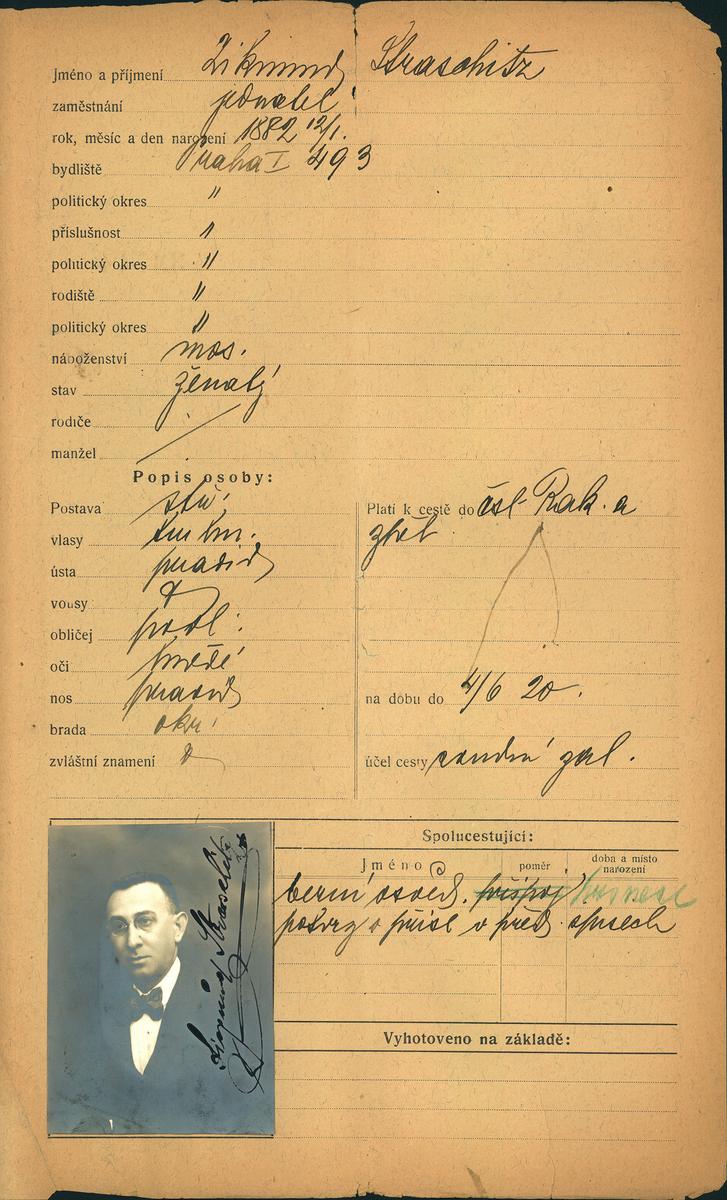 Jméno a příjmení Zikmund Straschitz
zaměstnání jednatel
rok, měsíc a den narození 1882 12/1.
bydliště Praha I 493
politický okres "
příslušnost "
politický okres "
rodiště "
politický okres "
náboženství mos.
stav ženatý
rodiče
manžel
Popis osoby:
Postava stř.
vlasy tm hn.
ústa pravid
vousy
obličej podl.
oči hnědé
nos pravid
brada okr.
zvláštní znamení
Platí k cestě do čsl Rak. a
zpět
na dobu do 4/6 20.
účel cesty
Spolucestující:
Jméno poměr doba a místo narození
berní osvěd.
potvrz o přísl v před. spisech
Vyhotoveno na základě:
Zigmund Straschitz